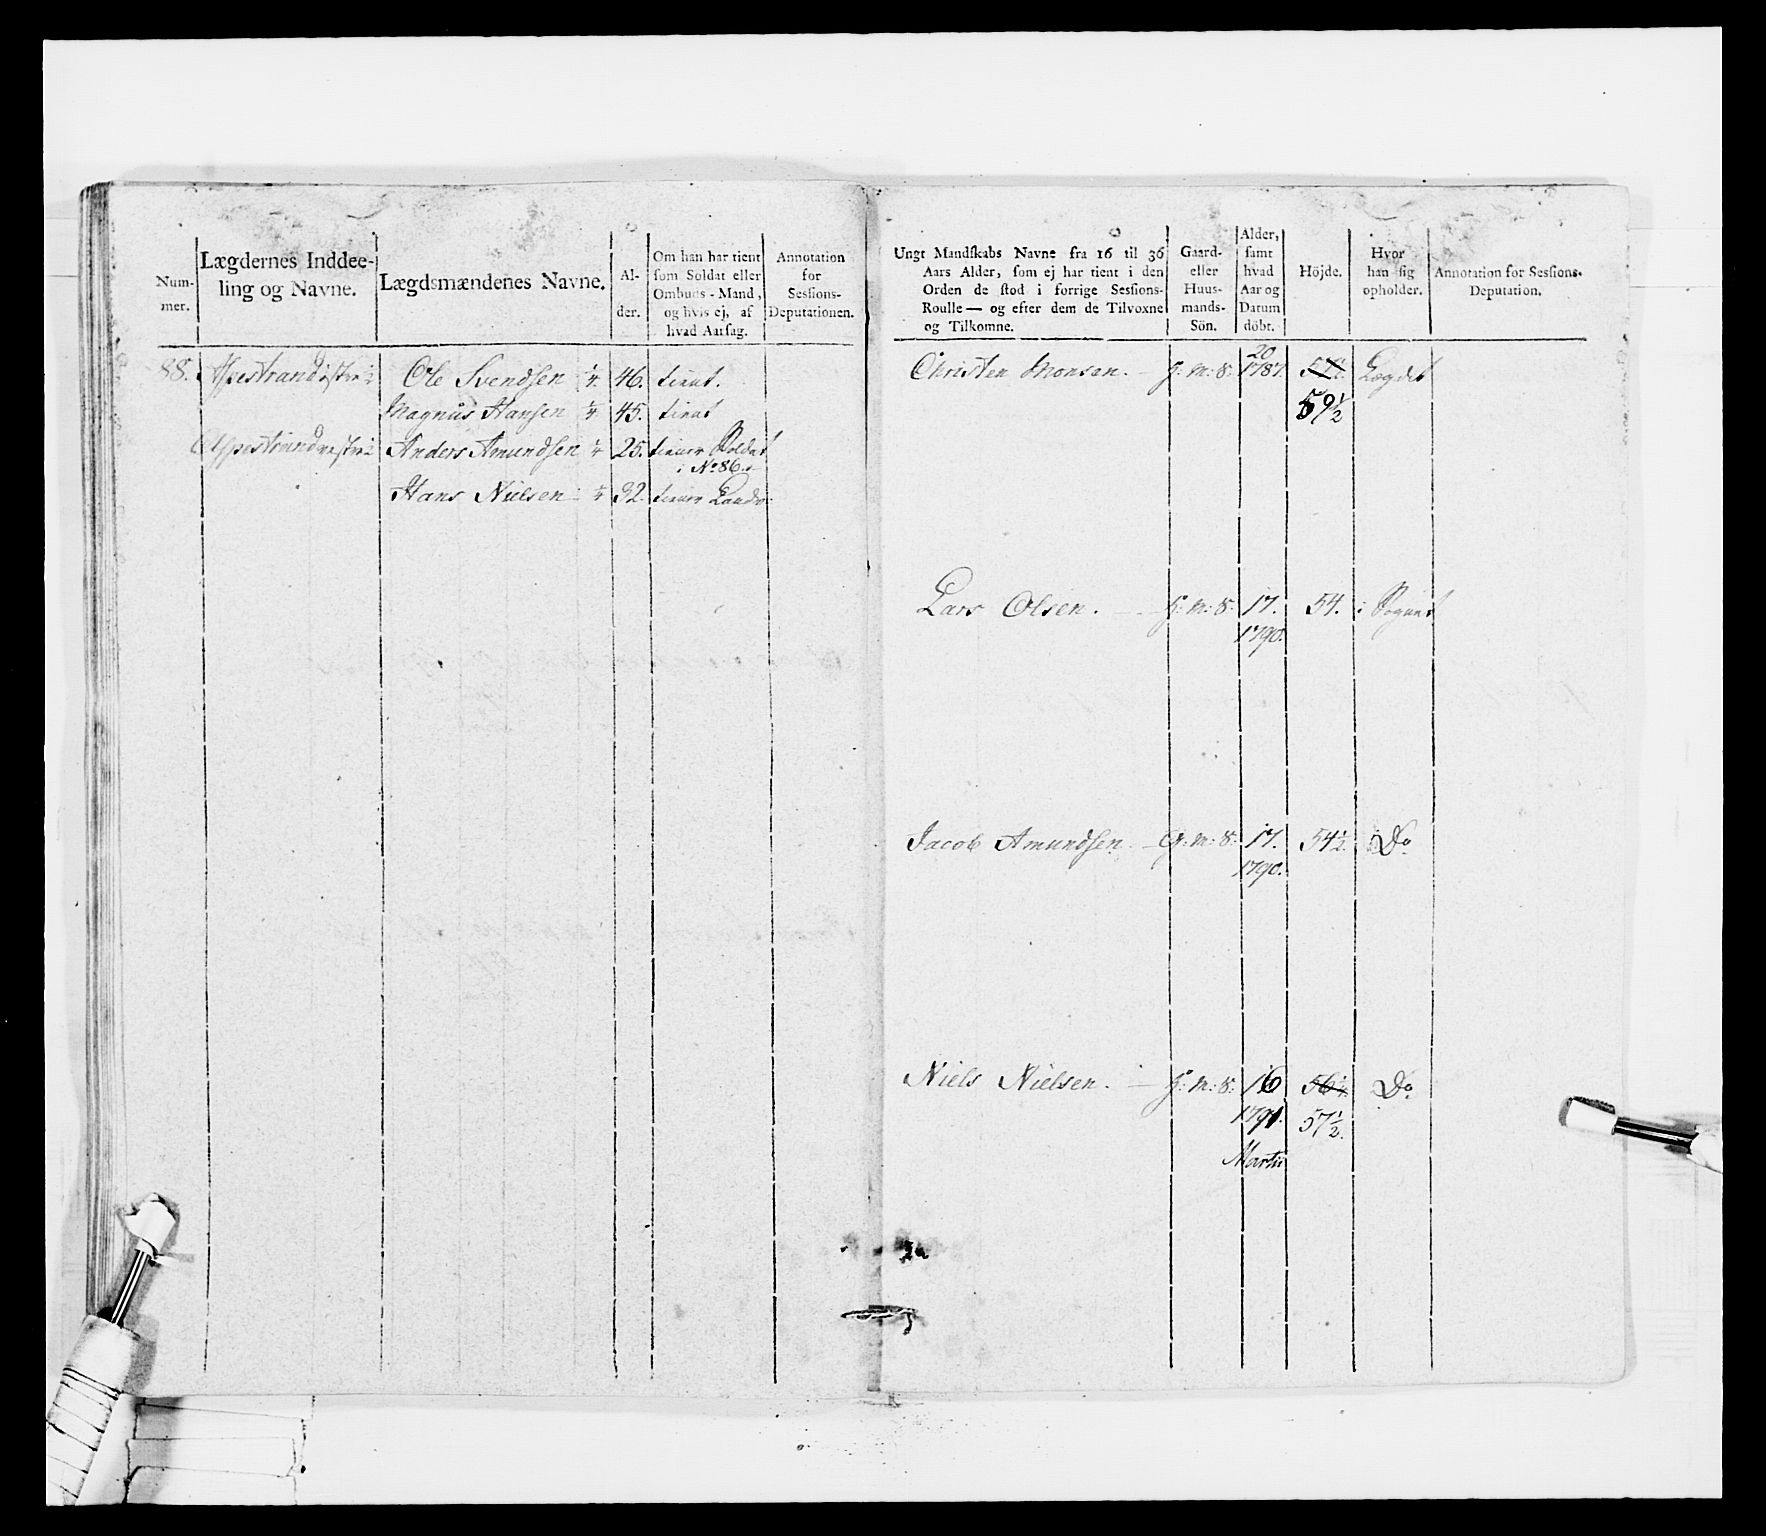 Num-
mer.
Lægdernes Inddee-
ling og Navne.
Lægdsmændenes Navne.
Al-
der.
Om han har tient
som Soldat eller
Ombuds-Mand,
og hvis ej, af
hvad Aarsag.
Annotation
for
Sessions-
Deputationen.
88. Aspestrand østre ½ Ole Svendsen ¼ 46. tient.
Magnus Hansen ¼ 45. tient
Aspestrand vestre ½ Anders Amundsen ¼ 25. tiener Soldat
i No 86.
Hans Nielsen ¼ 32. tiener Landv.
Ungt Mandskabs Navne fra 16 til 36
Aars Alder, som ej har tient i den
Orden de stod i forrige Sessions-
Roulle — og efter dem de Tilvoxne
og Tilkomne.
Gaard-
eller
Huus-
mands-
Sön.
Alder,
samt
hvad
Aar og
Datum
döbt.
Höjde.
Hvor
han sig
opholder.
Annotation for Sessions-
Deputation.
20
Christen Monsen. H: M: S: 1787. Lægdet
59½
Lars Olsen. H: M: S: 17. 54. i Sognet
1790.
Jacob Amundsen G: M: S: 17. 54½. Do
1790.
Niels Nielsen. H: M: S: 16 56½ Do
1791. 57½.
Marti